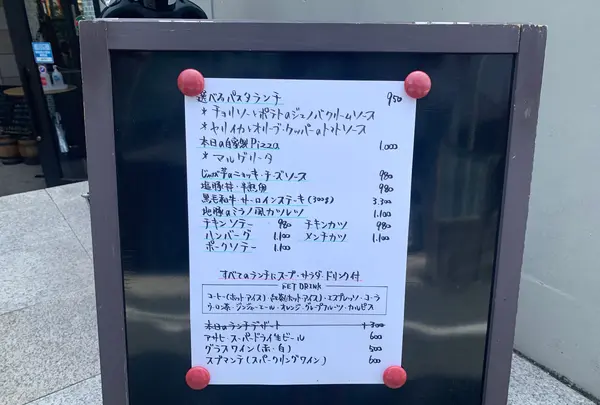 選べるパスタランチ 950
*チョリソーとポテトのジェノバクリームソース
*ヤリイカとオリーブ・ケッパーのトマトソース
本日の自家製Pizza 1.000
*マルゲリータ
じゃが芋のニョッキ・チーズソース 980
塩豚丼・半熟卵 980
黒毛和牛サーロインステーキ(300g) 3.300
地豚のミラノ風カツレツ 1.100
チキンソテー 980 チキンカツ 980
ハンバーグ 1.100 メンチカツ 1.100
ポークソテー 1.100
すべてのランチにスープ・サラダ・ドリンク付
SET DRINK
コーヒー(ホット・アイス)・紅茶(ホット・アイス)・エスプレッソ・コーラ
ウーロン茶・ジンジャーエール・オレンジ・グレープフルーツ・カルピス
本日のランチデザート +300
アサヒ・スーパードライ生ビール 600
グラスワイン(赤・白) 500
スプマンテ(スパークリングワイン) 600